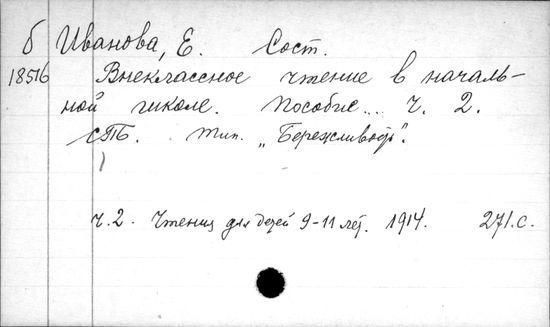 б Иванова, Е. Сост.
18516 Внеклассное чтение в началь-
ной школе. Пособие... Ч. 2.
СПб. Тип. „Бережливость".
ч. 2. Чтение для детей 9-11 лет. 1914. 271 с.